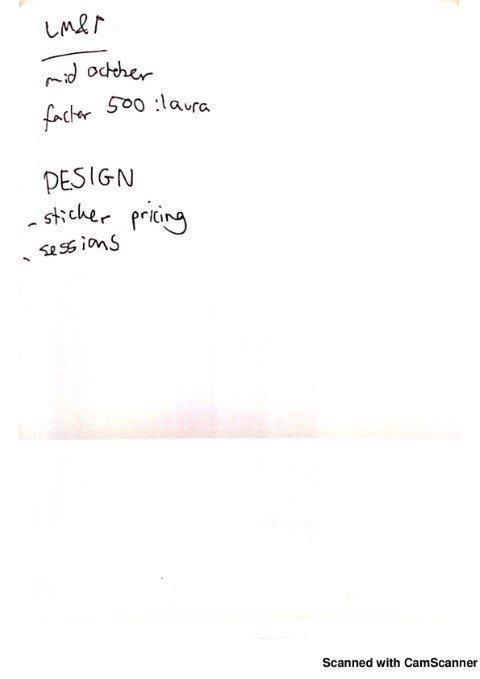 LM&P
mid october
factor 500 : laura
DESIGN
- sticker pricing
- sessions
Scanned with CamScanner